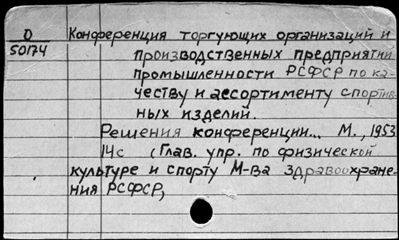 О
50174
Конференция торгующих организаций и
производственных предприятий
промышленности РСФСР по ка-
честву и ассортименту спортив-
ных изделий.
Решения конференции... М., 1953
14с (Глав. упр. по физической
культуре и спорту М-ва здравоохране-
ния РСФСР,